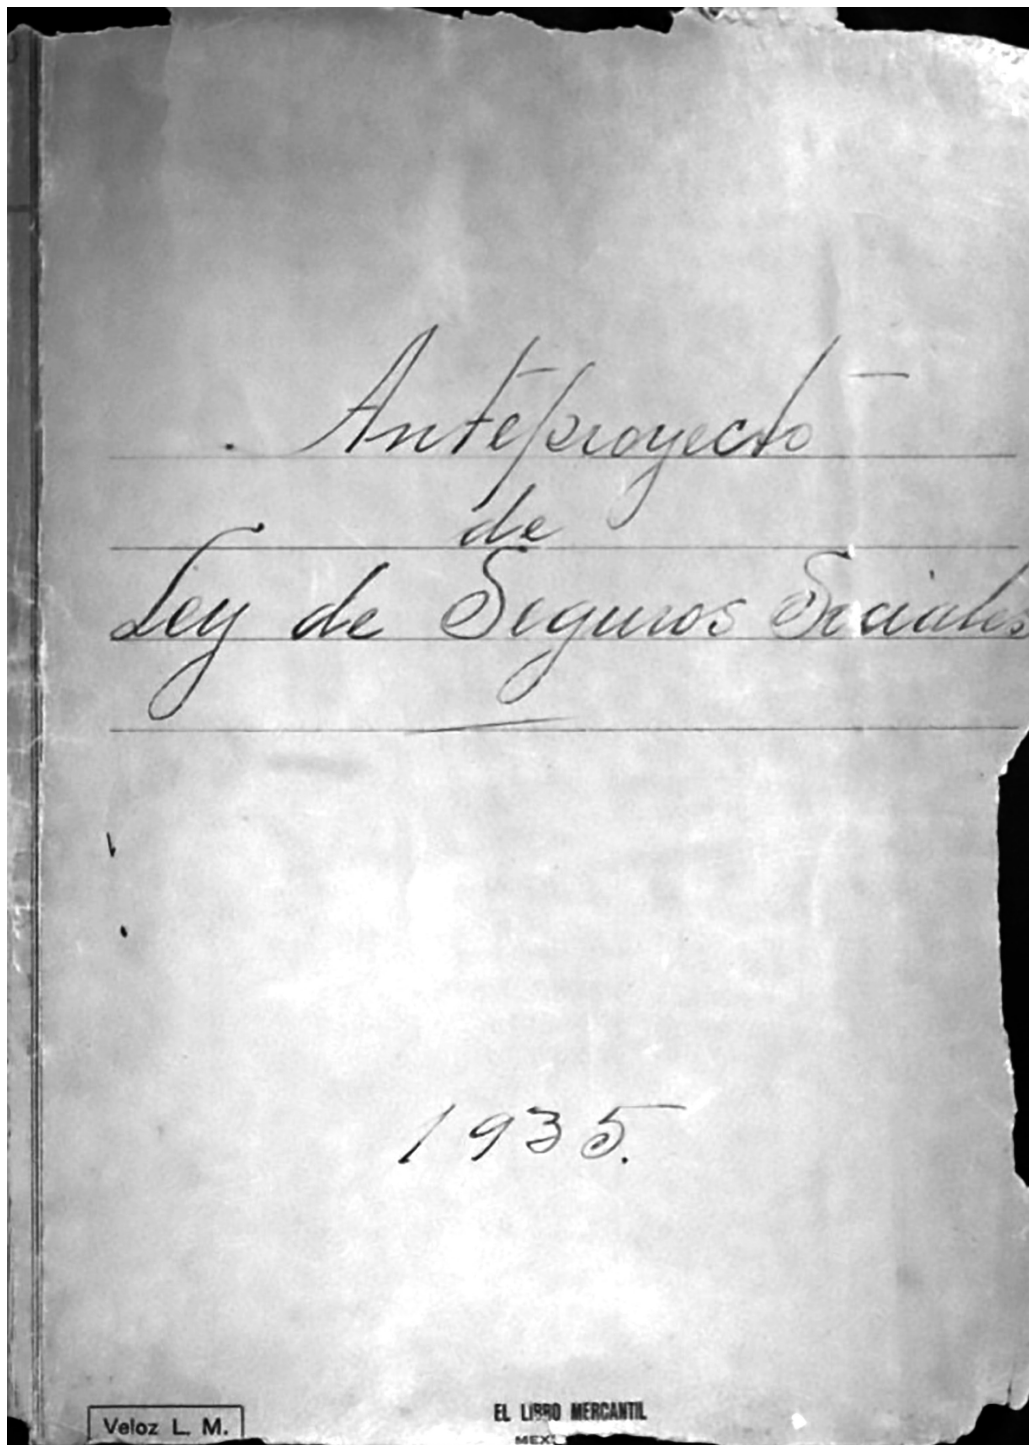 Anteproyecto
de
Ley de Seguros Sociales
1935.
Veloz L. M.
EL LIBRO MERCANTIL